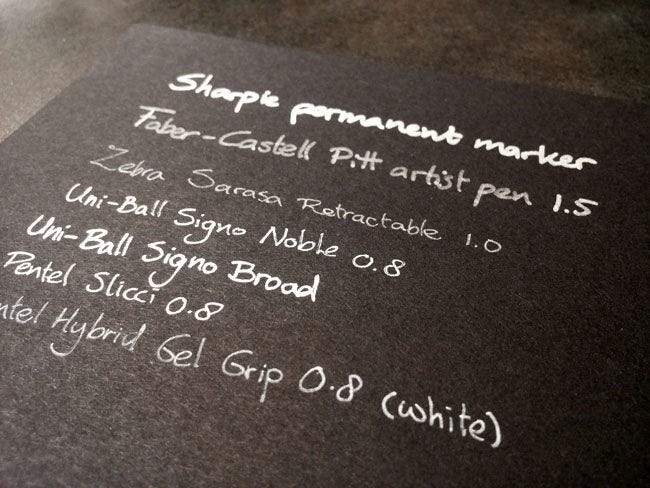 Sharpie permanent marker
Faber-Castell Pitt artist pen 1.5
Zebra Sarasa Retractable 1.0
Uni-Ball Signo Noble 0.8
Uni-Ball Signo Broad
Pentel Slicci 0.8
ntel Hybrid Gel Grip 0.8 (white)